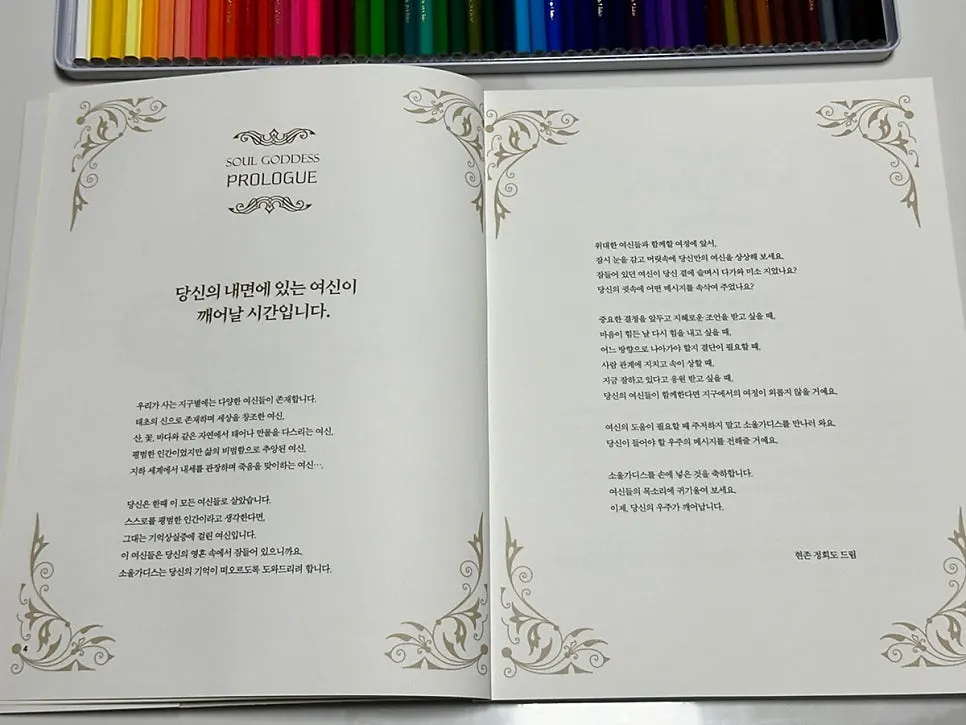 SOUL GODDESS
PROLOGUE
당신의 내면에 있는 여신이
깨어날 시간입니다.
우리가 사는 지구별에는 다양한 여신들이 존재합니다.
태초의 신으로 존재하며 세상을 창조한 여신,
산, 꽃, 바다와 같은 자연에서 태어나 만물을 다스리는 여신,
평범한 인간이었지만 삶의 비범함으로 추앙된 여신,
지하 세계에서 내세를 관장하며 죽음을 맞이하는 여신….
당신은 한때 이 모든 여신들로 살았습니다.
스스로를 평범한 인간이라고 생각한다면,
그대는 기억상실증에 걸린 여신입니다.
이 여신들은 당신의 영혼 속에서 잠들어 있으니까요.
소울가디스는 당신의 기억이 떠오르도록 도와드리려 합니다.
4
위대한 여신들과 함께할 여정에 앞서,
잠시 눈을 감고 머릿속에 당신만의 여신을 상상해 보세요.
잠들어 있던 여신이 당신 곁에 슬며시 다가와 미소 지었나요?
당신의 귓속에 어떤 메시지를 속삭여 주었나요?
중요한 결정을 앞두고 지혜로운 조언을 받고 싶을 때,
마음이 힘든 날 다시 힘을 내고 싶을 때,
어느 방향으로 나아가야 할지 결단이 필요할 때,
사람 관계에 지치고 속이 상할 때,
지금 잘하고 있다고 응원 받고 싶을 때,
당신의 여신들이 함께한다면 지구에서의 여정이 외롭지 않을 거예요.
여신의 도움이 필요할 때 주저하지 말고 소울가디스를 만나러 와요.
당신이 들어야 할 우주의 메시지를 전해줄 거예요.
소울가디스를 손에 넣은 것을 축하합니다.
여신들의 목소리에 귀기울여 보세요.
이제, 당신의 우주가 깨어납니다.
현존 정회도 드림